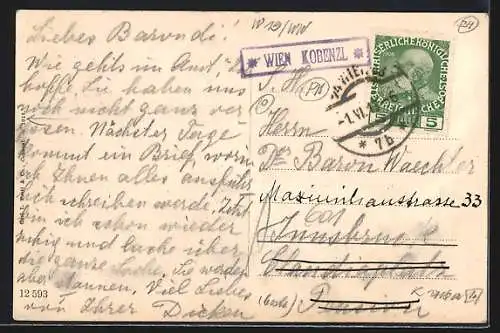 Liebes Barondi!
Wie gehts im Amt, ich
hoffe, Sie haben uns
noch nicht ganz ver
gessen. Nächster Tage
kommt ein Brief, worin
ich Ihnen alles ausführ
lich schreiben werde. Jetzt
bin ich schon wieder
ruhig und lache über
die ganze Sache. Sie werden
aber staunen. Viel Liebes
von Ihrer Dicken
12 593
W 19/WW
* WIEN KOBENZL *
PH
PH
KAISERLICHE KÖNIGLICHE
ÖSTERREICHISCHE POST
5 5
WIEN
-1.VI
* 7b *
S. H.
Herrn
Dr Baron Waechter
Maximilianstrasse 33
Innsbruck
Pension